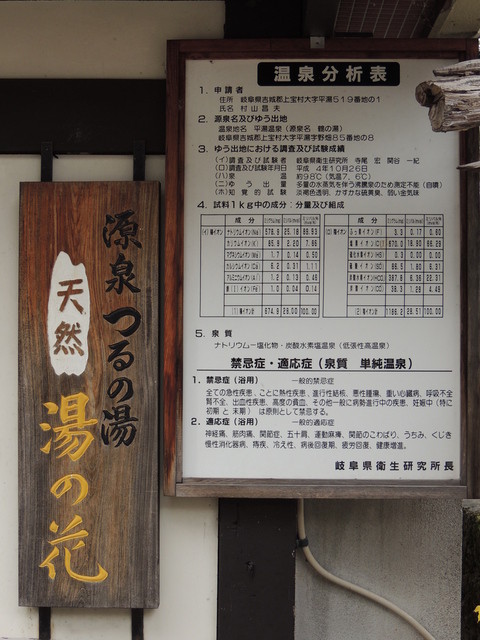 源泉 つるの湯
天然
湯の花
温泉分析表
1. 申請者
住所 岐阜県吉城郡上宝村大字平湯519番地の1
氏名 村山昌夫
2. 源泉名及びゆう出地
温泉地名 平湯温泉(源泉名 鶴の湯)
岐阜県吉城郡上宝村大字平湯字野畑85番地の8
3. ゆう出地における調査及び試験成績
(イ)調査及び試験者 岐阜県衛生研究所 寺尾 宏 関谷 一紀
(ロ)調査及び試験年月日 平成 4年10月26日
(ハ)泉温 約98℃(気温7.6℃)
(ニ)ゆう出量 多量の水蒸気を伴う沸騰泉のため測定不能(自噴)
(ホ)知覚的試験 淡褐色透明、かすかな硫黄臭、弱い金気味
4. 試料1kg中の成分:分量及び組成
成分
成分
(イ)陽イオン ナトリウムイオン(Na) 578.9 25.18
カリウムイオン(K) 85.9 2.20 7.86
マグネシウムイオン(Mg) 1.7 0.14 0.50
カルシウムイオン(Ca) 6.2 0.31 1.11
アルミニウムイオン(Al) 1.2 0.13 0.46
1.0 0.04 0.14
100.00
5. 泉質
ナトリウムー塩化物・炭酸水素塩温泉(低張性高温泉)
禁忌症・適応症(泉質 単純温泉)
1. 禁忌症(浴用) 一般的禁忌症
全ての急性疾患、ことに熱性疾患、進行性結核、悪性腫瘍、重い心臓病、呼吸不全
腎不全、出血性疾患、高度の貧血、その他一般に病勢進行中の疾患、妊娠中(特に
初期と末期) は原則として禁忌する。
2. 適応症(浴用) 一般的適応症
神経痛、筋肉痛、関節症、五十肩、運動麻痺、関節のこわばり、うちみ、くじき
慢性消化器病、痔疾、冷え性、病後回復期、疲労回復、健康増進。
岐阜県衛生研究所長